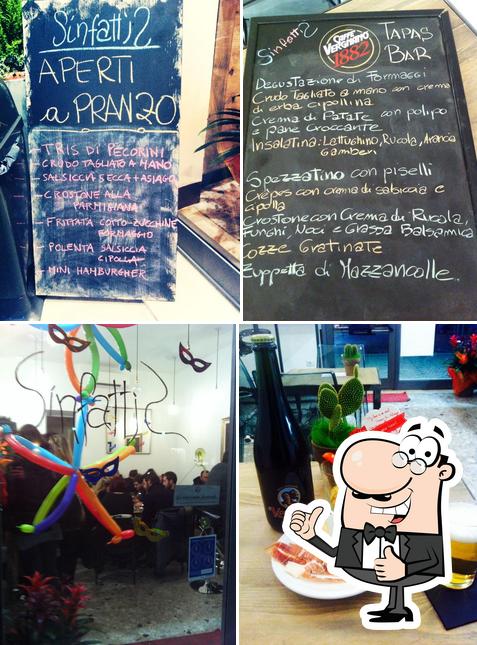 SinfattiS
APERTI
a PRANZO
- TRIS DI PECORINI
- CRUDO TAGLIATO A MANO
- SALSICCIA SECCA + ASIAGO
- CROSTONE ALLA
PARMIGIANA
- FRITTATA COTTO-ZUCCHINE
FORMAGGIO
- POLENTA SALSICCIA
CIPOLLA
- MINI HAMBURGHER
SinfattiS
CAFFÈ
VERGNANO
1882
TAPAS
BAR
Degustazione di Formaggi
Crudo Tagliato a mano con crema
di erba cipollina
Crema di Patate con polipo
e pane croccante
Insalatina: Lattughino, Rucola, Arancia
Gamberi
Spezzatino con piselli
Crêpes con crema di salsiccia e
cipolla
Crostone con Crema di Rucola,
Funghi, Noci e Glassa Balsamica
Cozze Gratinate
Zuppetta di Mazzancolle.
SinfattiS